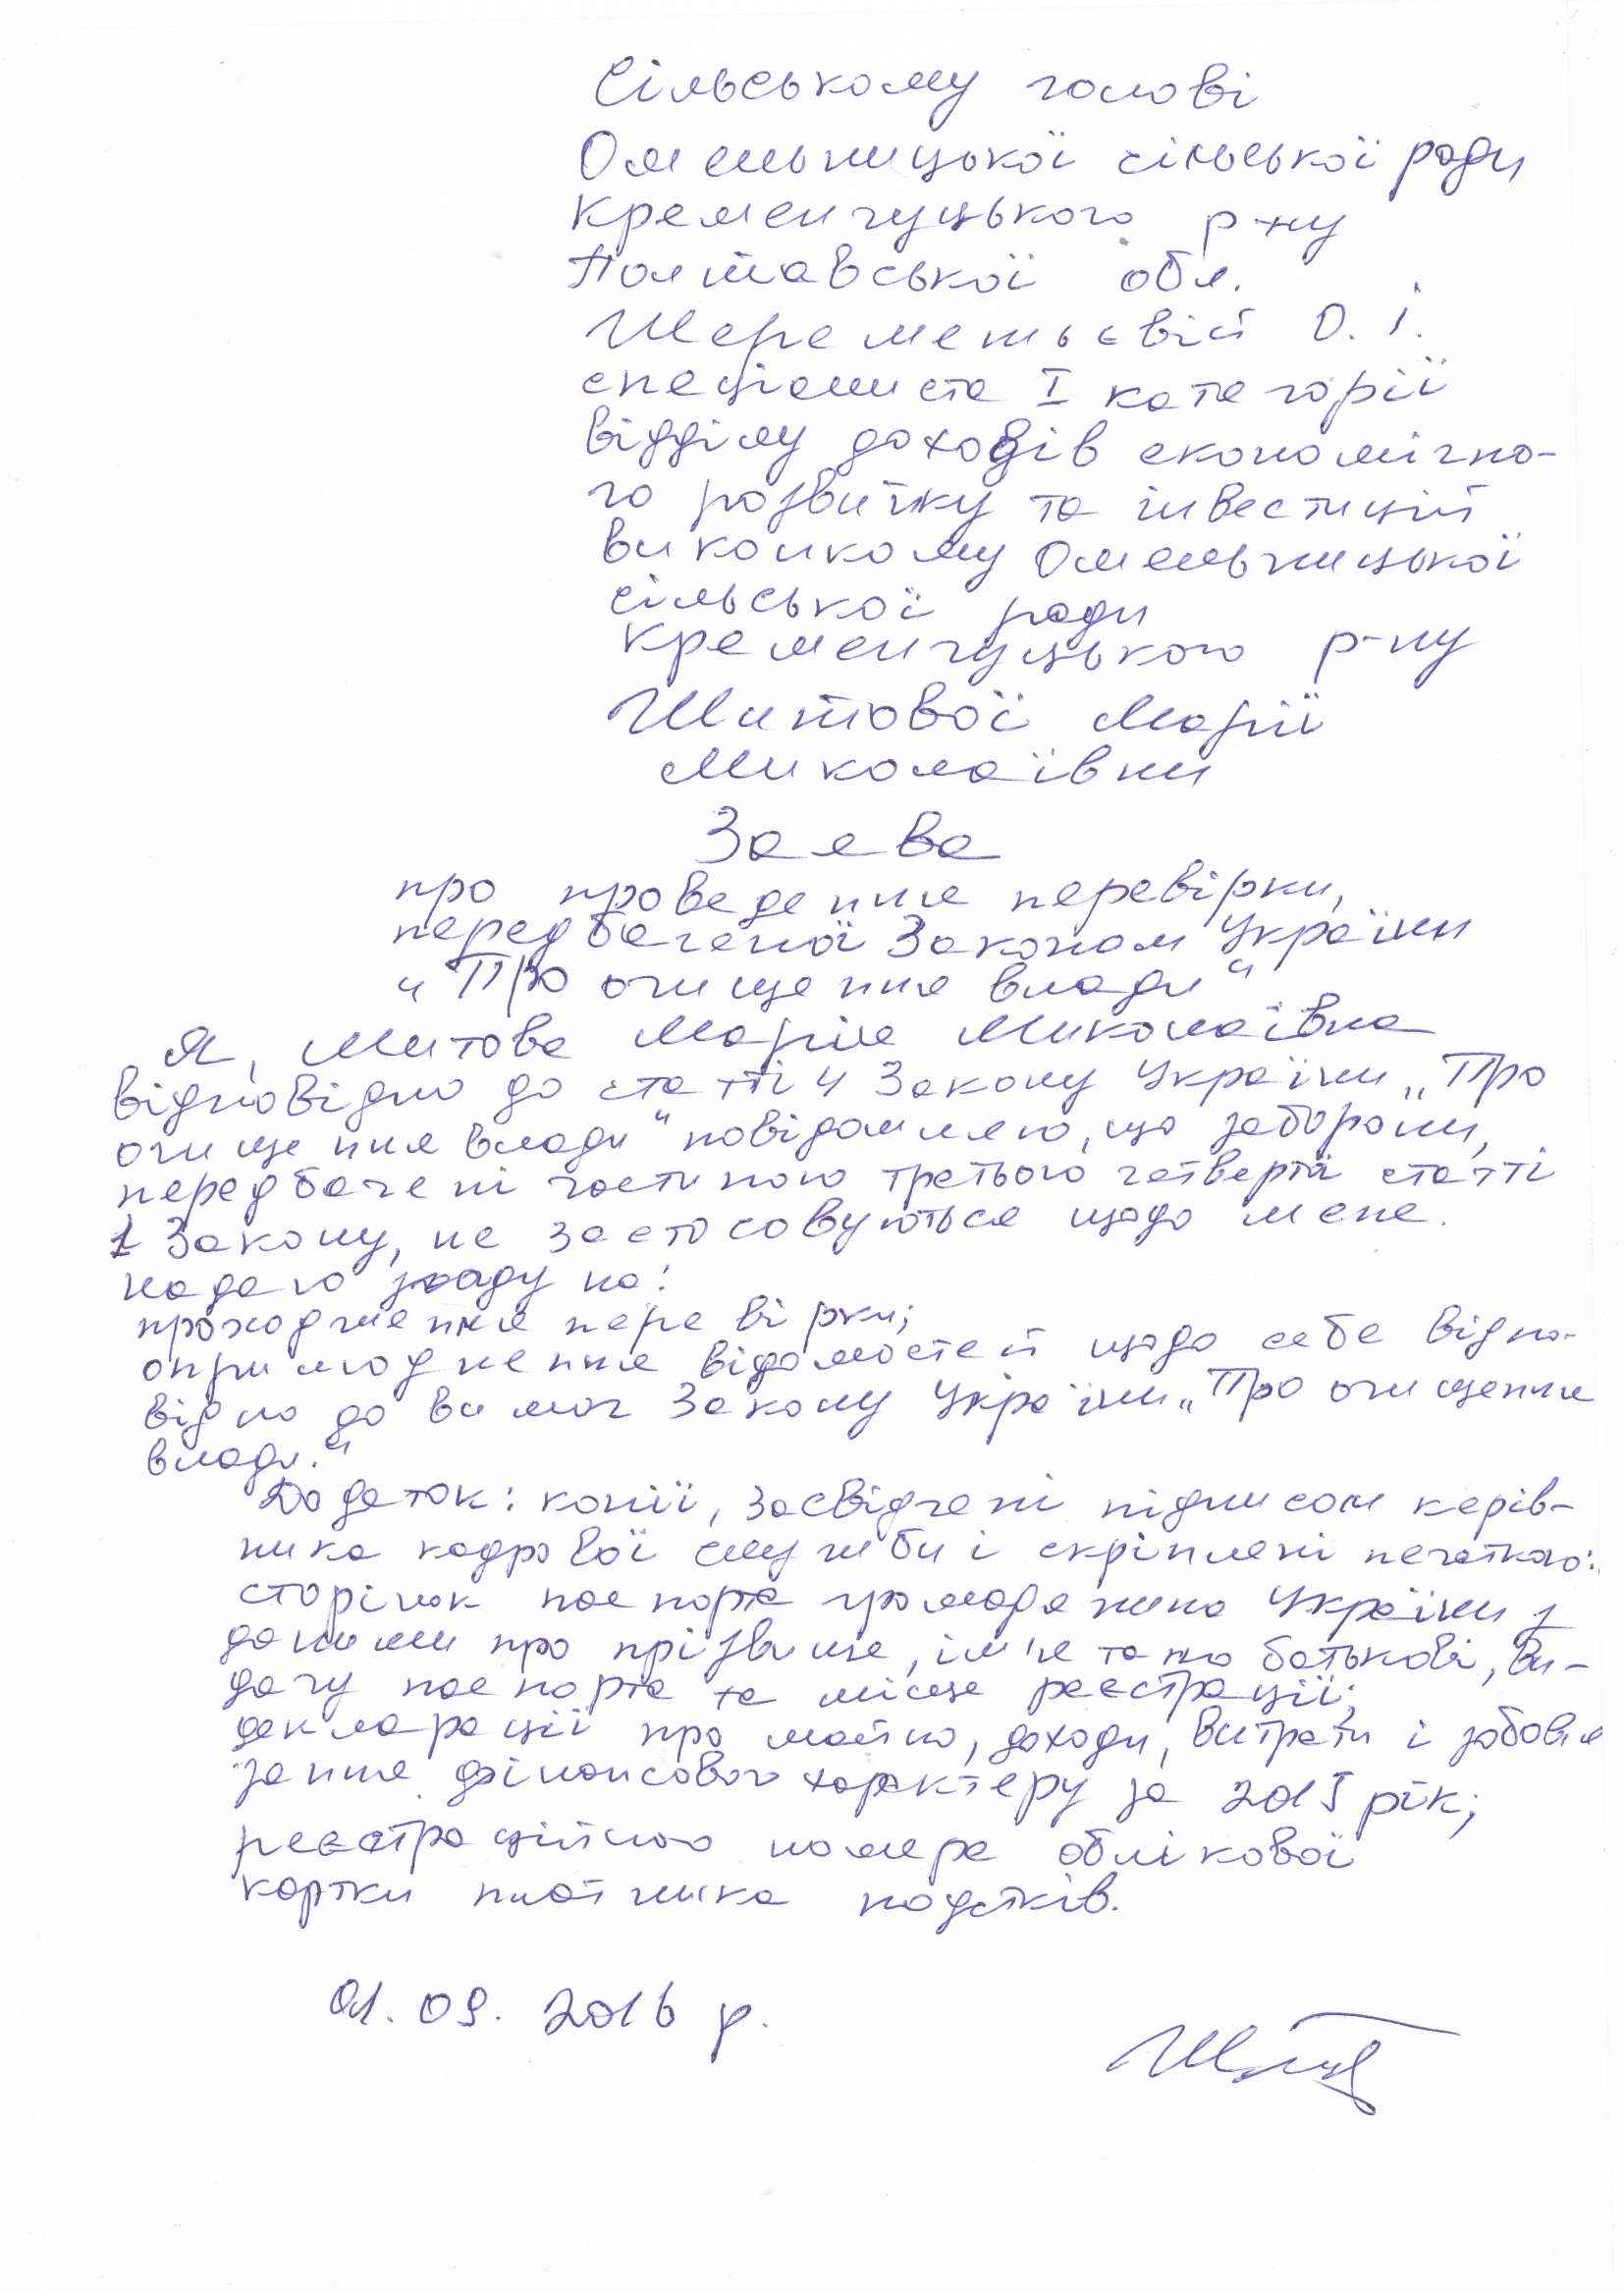 Сільському голові
Омельницької сільської ради
Кременчуцького р-ну
Полтавської обл.
Шереметьєвій О. І.
спеціаліста І категорії
відділу доходів економічно-
го розвитку та інвестицій
виконкому Омельницької
сільської ради
Кременчуцького р-ну
Шитової Марії
Миколаївни
Заява
про проведення перевірки,
передбаченої Законом України
"Про очищення влади"
Я, Шитова Марія Миколаївна
відповідно до статті 4 Закону України „Про
очищення влади" повідомляю, що заборони,
передбачені частиною третьою четвертій статті
1 Закону, не застосовуються щодо мене.
Надаю згоду на:
проходження перевірки;
оприлюднення відомостей щодо себе відпо-
відно до вимог Закону України „Про очищення
влади."
Додаток: копії, засвідчені підписом керів-
ника кадрової служби і скріплені печаткою:
сторінок паспорта громадянина України з
даними про прізвище, ім'я та по батькові, ви-
дачу паспорта та місце реєстрації;
декларації про майно, доходи, витрати і зобовя
зання фінансового характеру за 2015 рік;
реєстраційного номера облікової
картки платника податків.
01.09.2016 р.